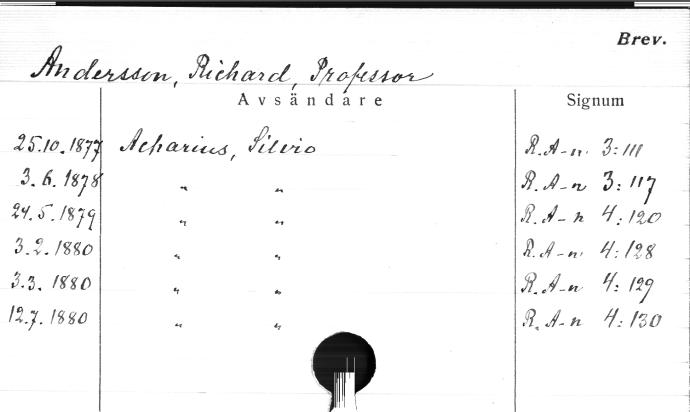 Brev.
Andersson, Richard, Professor
Avsändare Signum
25.10.1877 Acharius, Silvio R.A-n. 3:111
3.6.1878 " " R.A-n 3:117
24.5.1879 " " R.A-n 4:120
3.2.1880 " " R.A-n. 4:128
3.3.1880 " " R.A-n 4:129
12.7.1880 " " R.A-n 4:130